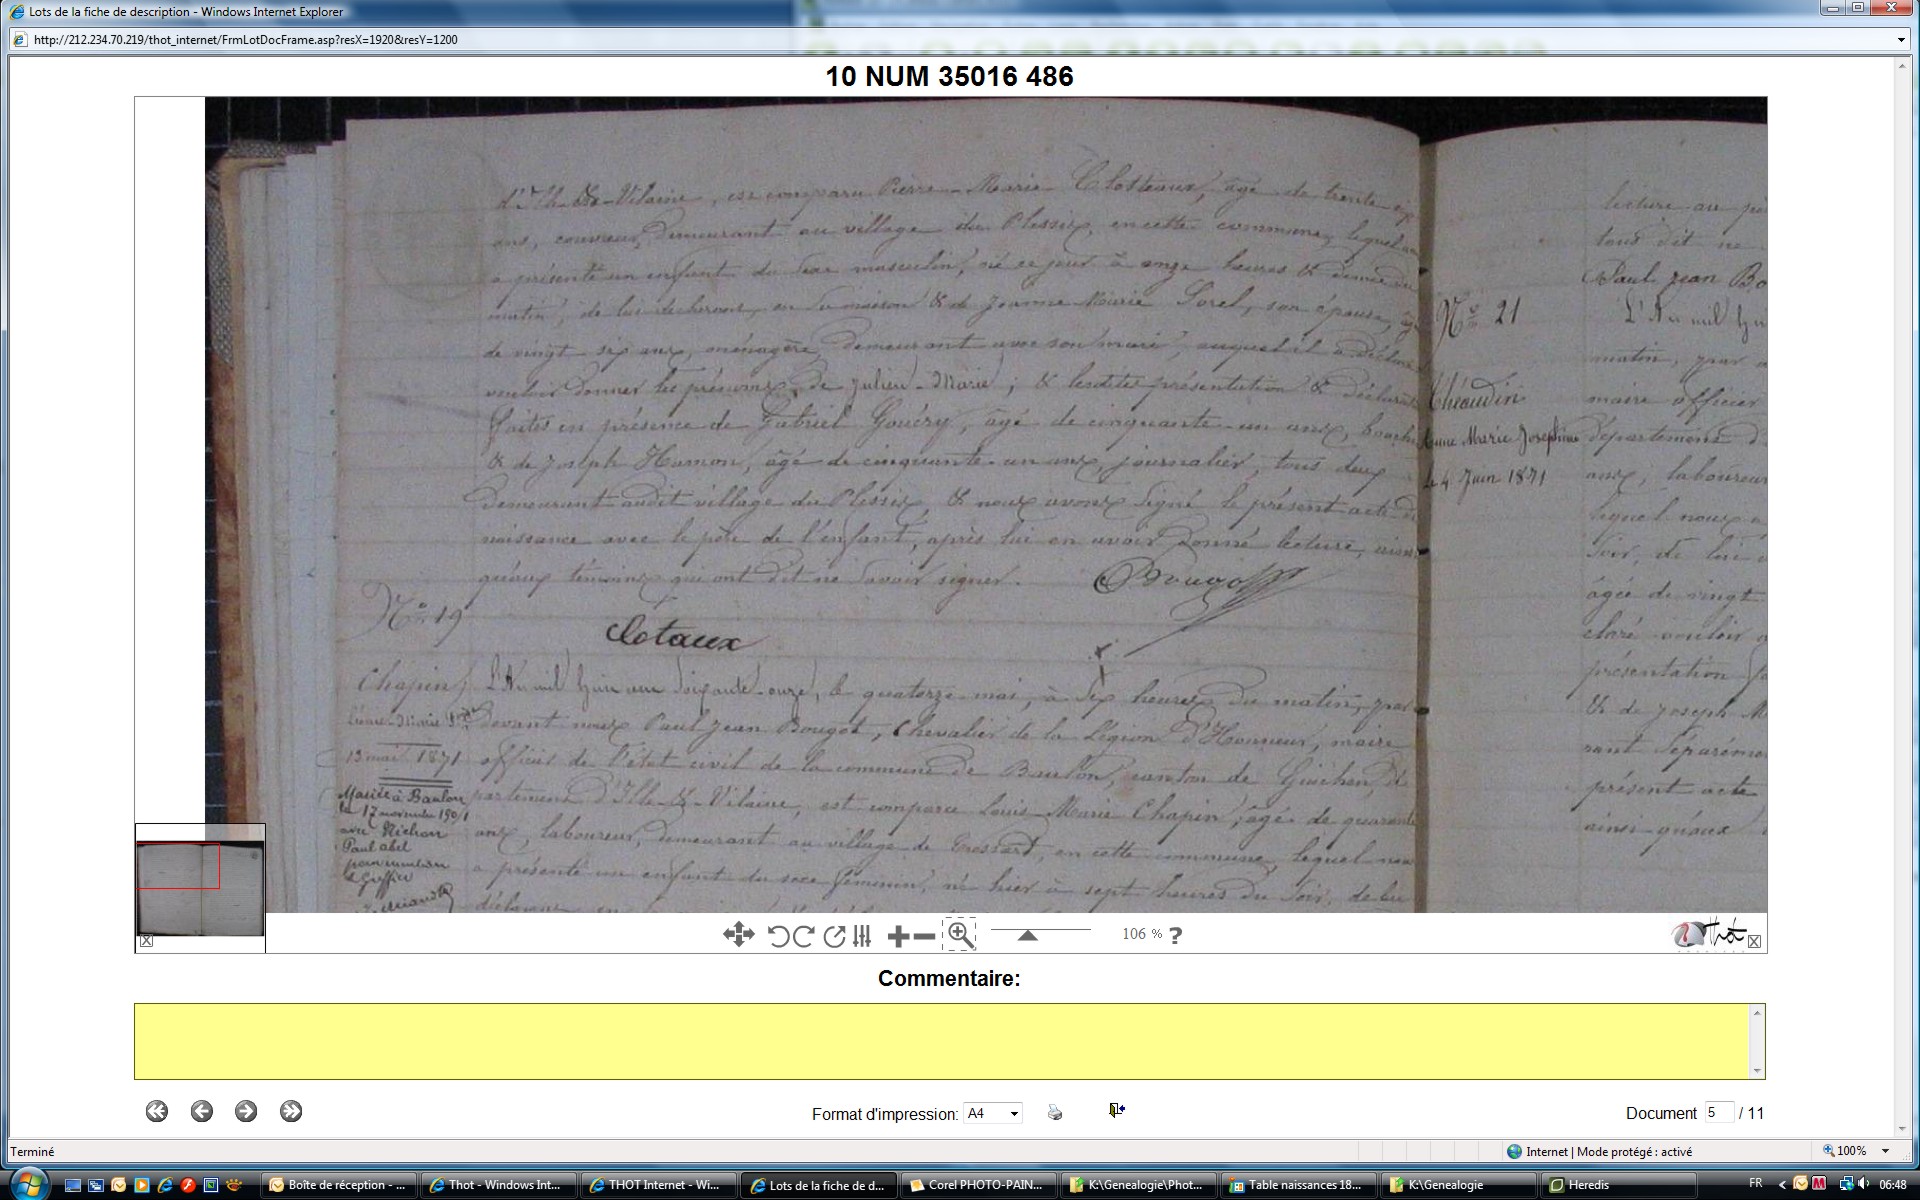 Lots de la fiche de description - Windows Internet Explorer
http://212.234.70.219/thot_internet/FrmLotDocFrame.asp?resX=1920&resY=1200
10 NUM 35016 486
d'Ille-&-Vilaine, est comparu Pierre-Marie Closteaux, âgé de trente
ans, couvreur, demeurant au village du Plessix, en cette commune, lequel
a présenté un enfant du sexe masculin, né ce jour à onze heures & demie du
matin, de lui déclarant, en sa maison & de Jeanne Marie Sorel, son épouse,
de vingt six ans, ménagère, demeurant avec son mari, auquel il a déclaré
vouloir donner les prénoms de Julien-Marie; & lesdites présentation &
faites en présence de Gabriel Gouéry, âgé de cinquante-un ans,
& de Joseph Hamon, âgé de cinquante-un ans, journalier, tous deux
demeurant audit village du Plessix, & nous avons signé le présent acte de
naissance avec le père de l'enfant, après lui en avoir donné lecture, ainsi
qu'aux témoins qui ont dit ne savoir signer.
Bougot
Clotaux
No 19
Chapin
13 mai 1871
Mariée à Baulon
le 17 novembre 1901
avec
Paul abel
le Greffier
L'An mil huit cent soixante-onze, le quatorze mai, à six heures du matin, par
devant nous Paul Jean Bougot, Chevalier de la Légion d'Honneur, maire
officier de l'état civil de la commune de Baulon, canton de Guichen, dé
partement d'Ille-&-Vilaine, est comparu Louis Marie Chapin, âgé de quarante
ans, laboureur, demeurant au village de, en cette commune, lequel nous
a présenté un enfant du sexe féminin, né hier à sept heures du soir, de lui
No 21
Théaudin
Marie Josephine
le 4 Juin 1871
lecture au
tous dit ne
Paul Jean Bo
L'An mil hui
matin, par
maire officier
département d
ans, laboureur
lequel nous a
soir, de lui
âgée de vingt
claré vouloir
présentation
& de Joseph M
rant séparéme
présent acte
ainsi qu'aux
106 % ?
Thot
Commentaire:
Format d'impression: A4
Document 5 / 11
Terminé
Internet | Mode protégé : activé
100%
Boîte de réception - ...
Thot - Windows Int...
THOT Internet - Wi...
Lots de la fiche de d...
Corel PHOTO-PAIN...
K:\Genealogie\Phot...
Table naissances 18...
K:\Genealogie
Heredis
FR
06:48